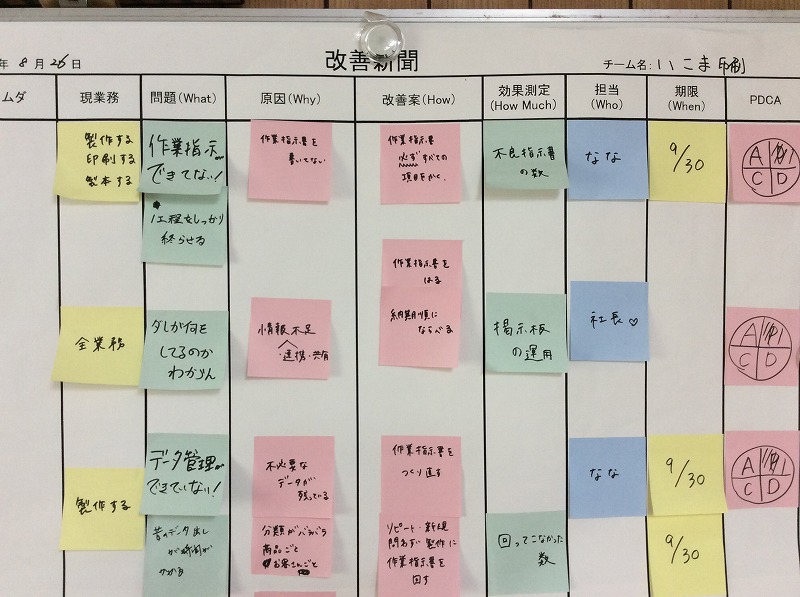 年 8 月 26 日
改善新聞
チーム名: いこま印刷
ムダ
現業務
問題(What)
原因(Why)
改善案(How)
効果測定
(How Much)
担当
(Who)
期限
(When)
PDCA
製作する
印刷する
製本する
作業指示が
できてない!
1工程をしっかり
終らせる
作業指示書を
書いてない
作業指示書
必ずすべての
項目をかく。
不良指示書
の数
なな
9/30
A P
C D
全業務
ダレが何を
してるのか
わからん
情報不足
・連携・共有
作業指示書を
はる
納期順に
ならべる
掲示板
の運用
社長♡
A P
C D
製作する
データ管理が
できていない!
昔のデータ出し
が時間が
かかる
不必要な
データが
残っている
分類がバラバラ
商品ごと
お客さんごと
作業指示書を
つくり直す
リピート・新規
問わず製作に
作業指示書を
回す
回ってこなかった
数
なな
9/30
9/30
A P
C D